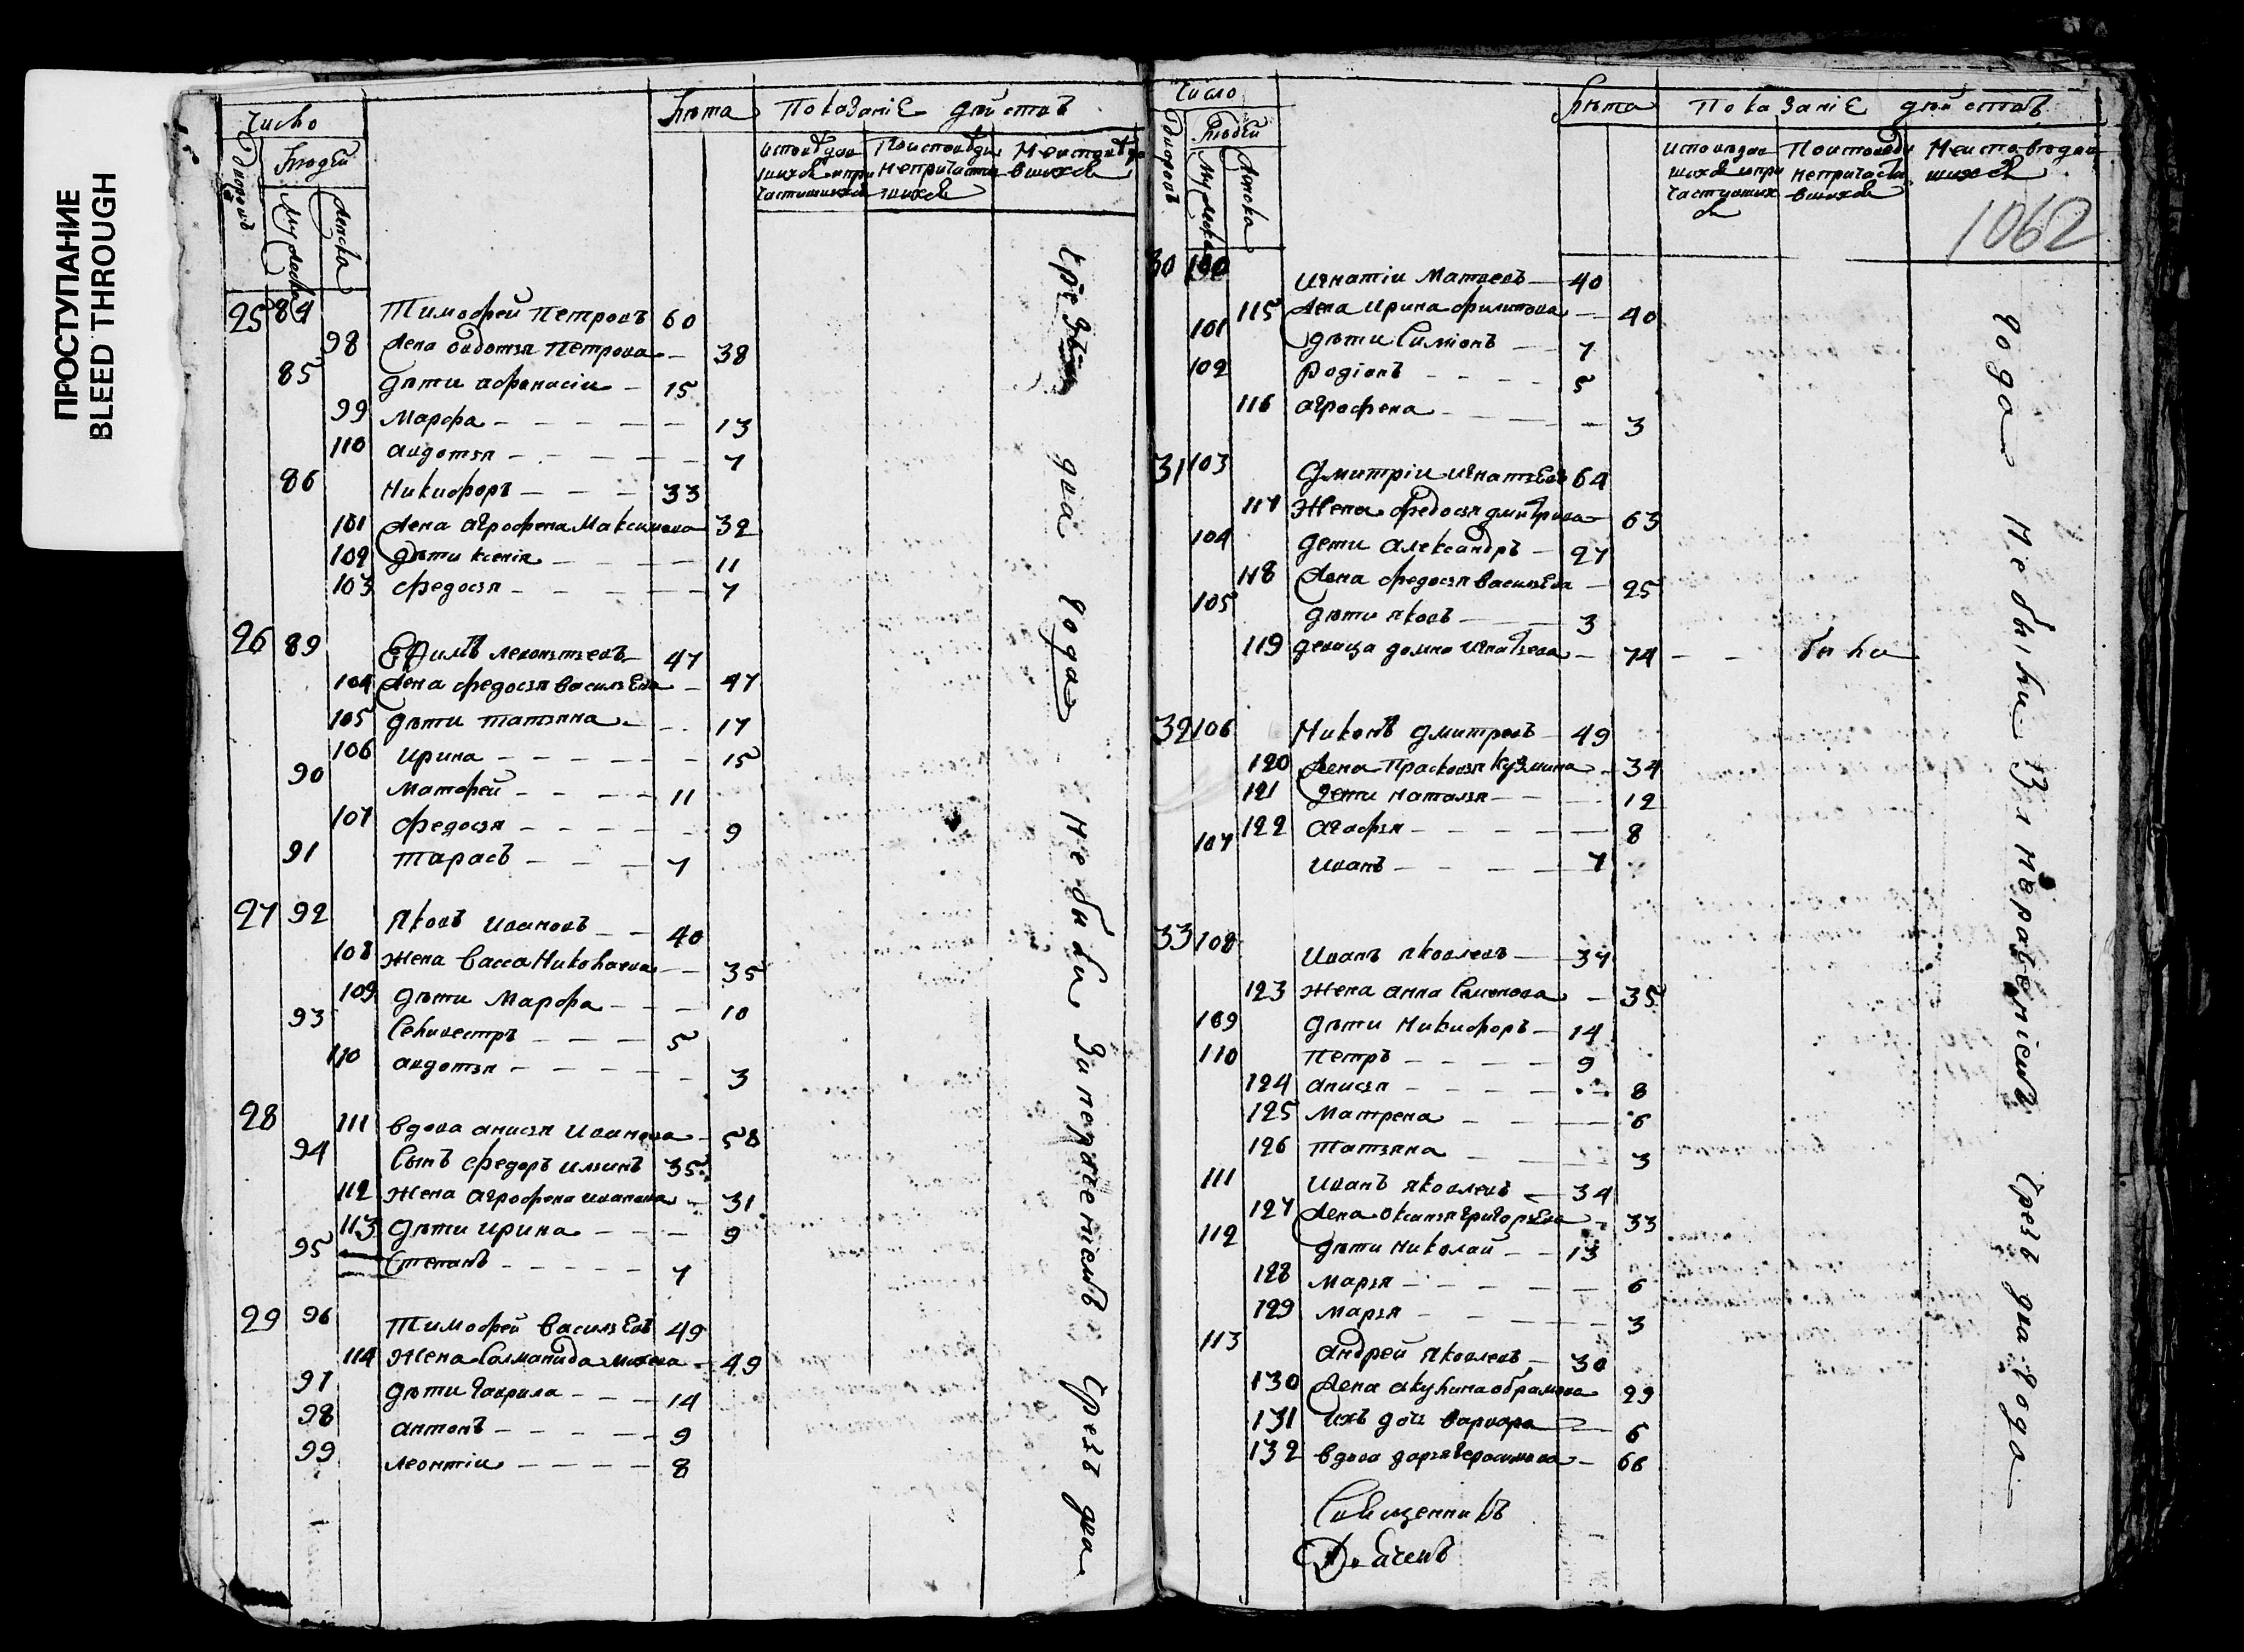 ПРОСТУПАНИЕ
BLEED THROUGH
Число
Лѣта
Показаніе дѣйствъ
дворовъ
Людей
Мужеска
Женска
25 84 Тимофей Петровъ 60
98 Жена овдотья Петрова 38
85 дѣти афанасіи 15
99 Марфа 13
110 авдотья 7
86 Никифоръ 33
101 Жена агрофена Максимова 32
102 дѣти ксенія 11
103 федосья 7
26 89 Ефимъ леонтьевъ 47
104 Жена федосья васильева 47
105 дѣти татьяна 17
106 ирина 15
90 Матфей 11
107 федосья 9
91 тарасъ 7
27 92 яковъ ивановъ 40
108 жена васса Николаева 35
109 дѣти Марфа 10
93 Селивестръ 5
110 авдотья 3
28 111 вдова анисья иванова 58
94 Сынъ федоръ ильинъ 35
112 жена агрофена иванова 31
113 дѣти ирина 9
95 Степанъ 7
29 96 Тимофей васильевъ 49
114 жена Саламанида 49
97 дѣти гаврила 14
98 антонъ 9
99 леонтіи 8
чрезъ два года
не были За неравеніемъ чрезъ два
Число
Лѣта
Показаніе дѣйствъ
дворовъ
Людей
Мужеска
Женска
1062
30 100 игнатіи Матвеевъ 40
115 Жена ирина филипова 40
101 дѣти Симіонъ 7
102 Родіонъ 5
116 агрофена 3
31 103 Дмитріи игнатьевъ 64
117 Жена федосья дмитрива 63
104 дети александръ 27
118 Жена федосья васильева 25
105 дѣти яковъ 3
119 девица домна игнатьева 74 была
32 106 Никонъ дмитровъ 49
120 Жена Прасковья кузмина 34
121 дети наталья 12
122 агафья 8
107 иванъ 7
33 108 иванъ яковлевъ 37
123 жена анна Симонова 35
109 дѣти Никифоръ 14
110 петръ 9
124 анисья 8
125 матрена 6
126 татьяна 3
111 иванъ яковлевъ 34
127 Жена оксинья григорьева 33
112 дѣти Николаи 13
128 марья 6
129 марья 3
113 андрей яковлевъ 30
130 Жена акулина обрамова 29
131 ихъ дочь варвара 6
132 вдова дарья герасимова 66
Священникъ
года не были За неравеніемъ чрезъ два года